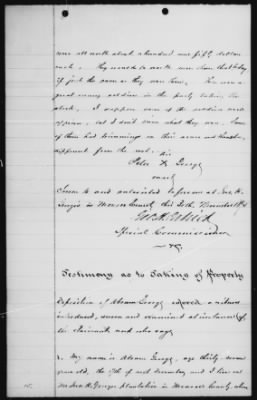 was all worth about a hundred and fifty dollars
each. They would be worth more than that to day
if just the same as they was then. There were a
great many soldiers in the party taking the
stock, I suppose some of the soldiers were
officers, but I don't know what they was. Some
of them had trimming on their arms and shoulders,
different from the rest.
his
Peter X George
mark
Sworn to and subscribed before me at Jas. H.
George's in Monroe County this 20th November 187
Special Commissioner
Testimony as to Taking of Property
Deposition of Abram George colored, a witness
introduced, sworn and examined at instance of
the Claimants and who says
1. My name is Abram George, age thirty seven
years old, the 17th of next December, and I live at
Mr. Jas. H. George's plantation in Monroe County, where